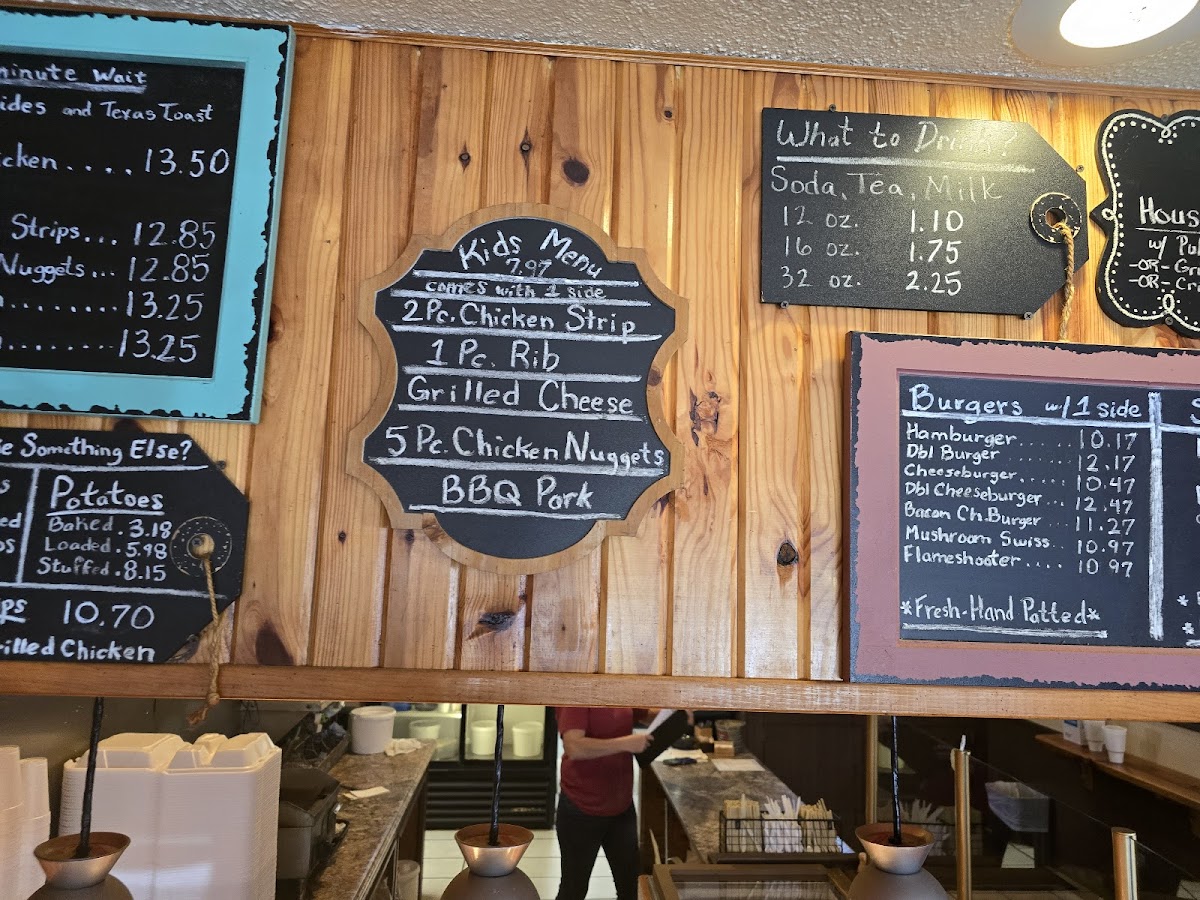 minute Wait
ides and Texas Toast
icken . . . . 13.50
Strips... 12.85
Nuggets... 12.85
........ 13.25
........ 13.25
Something Else?
Potatoes
Baked . 3.18
Loaded . 5.98
Stuffed . 8.15
10.70
rilled Chicken
Kids Menu
7.97
comes with 1 side
2 Pc. Chicken Strip
1 Pc. Rib
Grilled Cheese
5 Pc. Chicken Nuggets
BBQ Pork
What to Drink?
Soda, Tea, Milk
12 oz. 1.10
16 oz. 1.75
32 oz. 2.25
Hous
w/ Pul
-OR- Gr
-OR- Cri
Burgers w/ 1 side
Hamburger...... 10.17
Dbl Burger 12.17
Cheeseburger.... 10.47
Dbl Cheeseburger... 12.47
Bacon Ch.Burger ... 11.27
Mushroom Swiss.. 10.97
Flameshooter .... 10.97
*Fresh-Hand Patted*